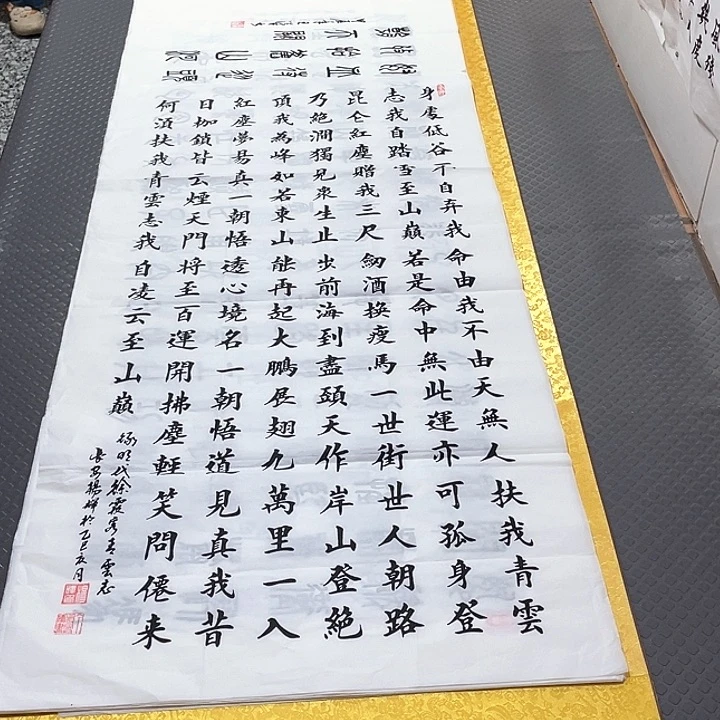 身處低谷不自弃我命由我不由天無人扶我青雲
志我自踏雪至山巔若是命中無此運亦可孤身登
昆仑紅塵贈我三尺劒酒換瘦馬一世街世人朝路
乃絕澗獨見衆生止步前海到盡頭天作岸山登絕
頂我為峰如若東山能再起大鵬展翅九萬里一入
紅塵夢易真一朝悟透心境名一朝悟道見真我昔
日枷鎖皆云煙天門將至百運開拂塵輕笑問僊来
何須扶我青雲志我自凌云至山巔
録明代徐霞客青雲志
於乙巳夏月